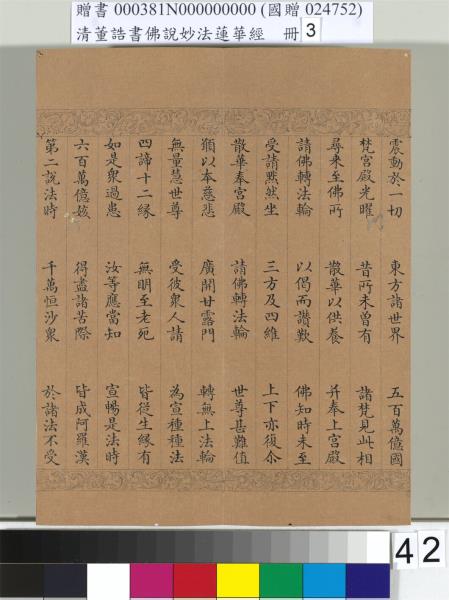 贈書 000381N000000000 (國贈 024752)
清董誥書佛說妙法蓮華經 冊 3
震動於一切 東方諸世界 五百萬億國
梵宮殿光曜 昔所未曾有 諸梵見此相
尋來至佛所 散華以供養 并奉上宮殿
請佛轉法輪 以偈而讚歎 佛知時未至
受請默然坐 三方及四維 上下亦復尒
散華奉宮殿 請佛轉法輪 世尊甚難值
願以本慈悲 廣開甘露門 轉無上法輪
無量慧世尊 受彼衆人請 為宣種種法
四諦十二緣 無明至老死 皆從生緣有
如是衆過患 汝等應當知 宣暢是法時
六百萬億姟 得盡諸苦際 皆成阿羅漢
第二說法時 千萬恒沙衆 於諸法不受
42